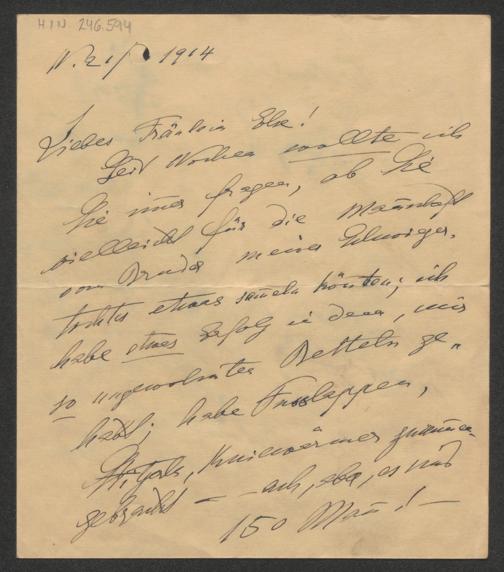 H.I.N. 246.594
W. 21/ 1914
Liebes Fräulein Else!
Seit Wochen wollte ich
Sie immer fragen, ob Sie
vielleicht für die Mannschaft
vom Bruder meiner Schwieger-
tochter etwas sammeln könnten; ich
habe etwas Erfolg in dem, mir
so ungewohnten Betteln ge-
habt; habe Fusslappen,
Kniewärmer zusammen-
gebracht – – ach, aber, es sind
150 Mann! –